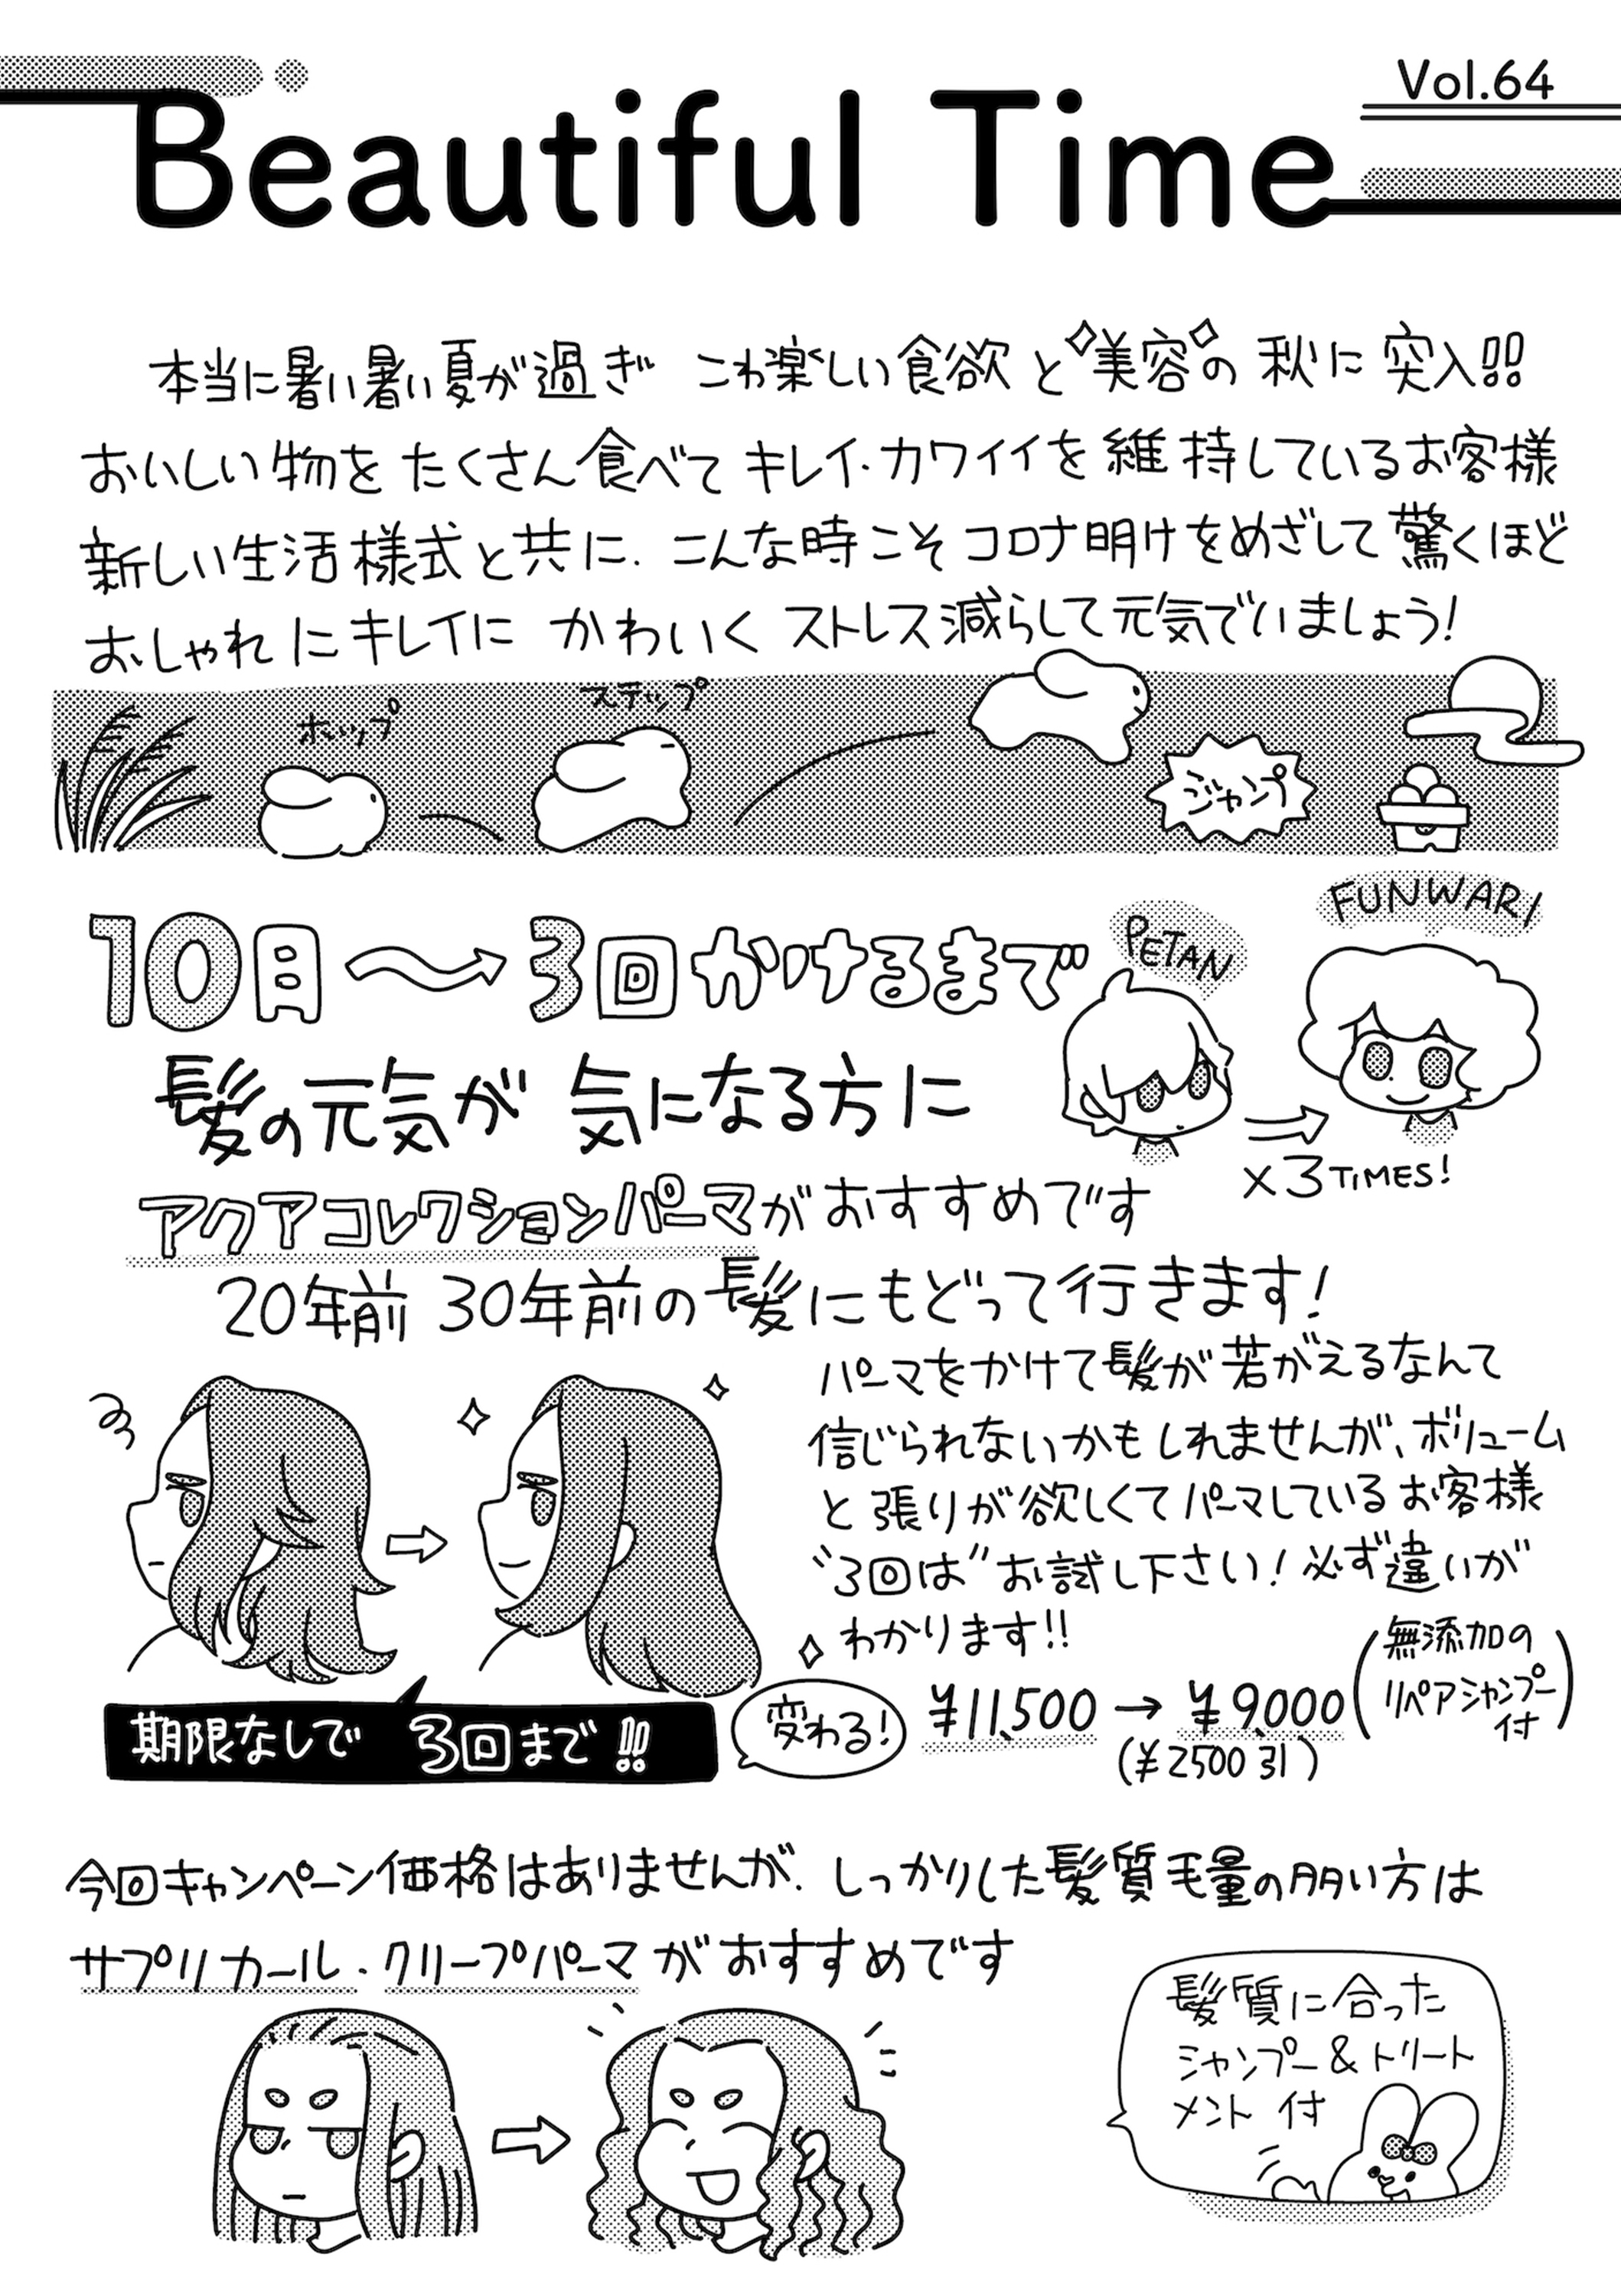 Vol.64
Beautiful Time
本当に暑い暑い夏が過ぎ こわ楽しい食欲と美容の秋に突入!!
おいしい物をたくさん食べてキレイ・カワイイを維持しているお客様
新しい生活様式と共に、こんな時こそコロナ明けをめざして驚くほど
おしゃれにキレイに かわいく ストレス減らして元気でいましょう!
ホップ
ステップ
ジャンプ
10月〜3回かけるまで
PETAN
FUNWARI
×3TIMES!
髪の元気が気になる方に
アクアコレクションパーマがおすすめです
20年前 30年前の髪にもどって行きます!
パーマをかけて髪が若がえるなんて
信じられないかもしれませんが、ボリューム
と張りが欲しくてパーマしているお客様
"3回は"お試し下さい!必ず違いが
わかります!!
期限なしで 3回まで!!
変わる!
¥11,500→¥9,000(無添加の
リペアシャンプー
付)
(¥2500引)
今回キャンペーン価格はありませんが、しっかりした髪質毛量の多い方は
サプリカール・クリープパーマがおすすめです
髪質に合った
シャンプー&トリート
メント付